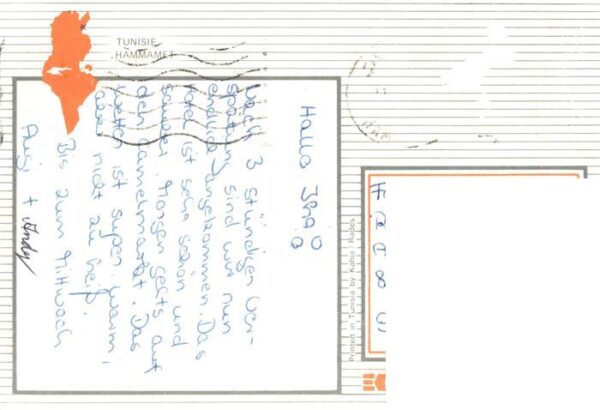 TUNISIE
HAMMAMET
Hallo
Nach 3 stündiger Ver-
spätung sind wir nun
endlich angekommen. Das
Hotel ist sehr schön und
sauber. Morgen geht's auf
den Camelmarkt. Das
Wetter ist super. Warm,
aber nicht zu heiß.
Bis zum Mittwoch
+ Andy
Printed in Tunisia by Kahia / Rades